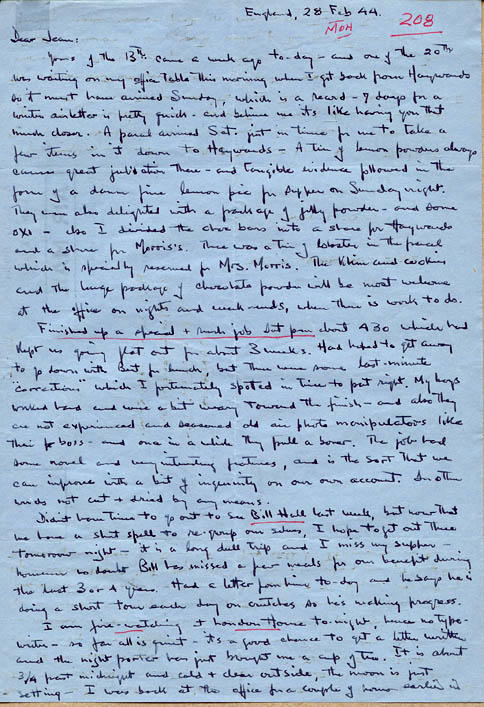 England, 28 Feb 44.
MOH
208
Dear Jean:
Yours of the 13th came a week ago to-day - and one of the 20th
was waiting on my office table this morning when I got back from Haywards
so it must have arrived Sunday, which is a record - 7 days for a
winter airletter is pretty quick - and believe me its like having you that
much closer. A parcel arrived Sat. just in time for me to take a
few items in it down to Haywards - A tin of lemon powder always
causes great jubilation there - and tangible evidence followed in the
form of a damn fine lemon pie for supper on Sunday night.
They were also delighted with a package of jelly powder - and some
oxo - also I divided the choc bars into a share for Haywards
and a share for Morris's. There was a tin of lobster in the parcel
which is specially reserved for Mrs. Morris. The Klim and cookies
and the huge package of chocolate powder will be most welcome
at the office on nights and week-ends, when there is work to do.
Finished up a special + rush job Sat p.m. about 4.30 which had
kept us going flat out for about 3 weeks. Had hoped to get away
to go down with for lunch, but there were some last-minute
"corrections" which I fortunately spotted in time to put right. My boys
worked hard and were a bit weary toward the finish - and also they
are not experienced and seasoned old air photo manipulators like
their boss - and once in a while they pull a boner. The job had
some novel and very interesting features, and is the sort that we
can improve with a bit of ingenuity on our own account. In other
words not cut + dried by any means.
Didn't have time to go out to see Bill Hall last week, but now that
we have a short spell to re-group our selves, I hope to get out there
tomorrow night - it is a long dull trip and I miss my supper -
however no doubt Bill has missed a few meals for our benefit during
the last 3 or 4 years. Had a letter from him to-day and he says he is
doing a short tour each day on crutches so he's making progress.
I am fire-watching at London House to-night, hence no type-
writer - so far all is quiet - its a good chance to get a letter written
and the night porter has just brought me a cup of tea. It is about
3/4 past midnight and cold + clear outside, the moon is just
setting - I was back at the office for a couple of hours earlier in